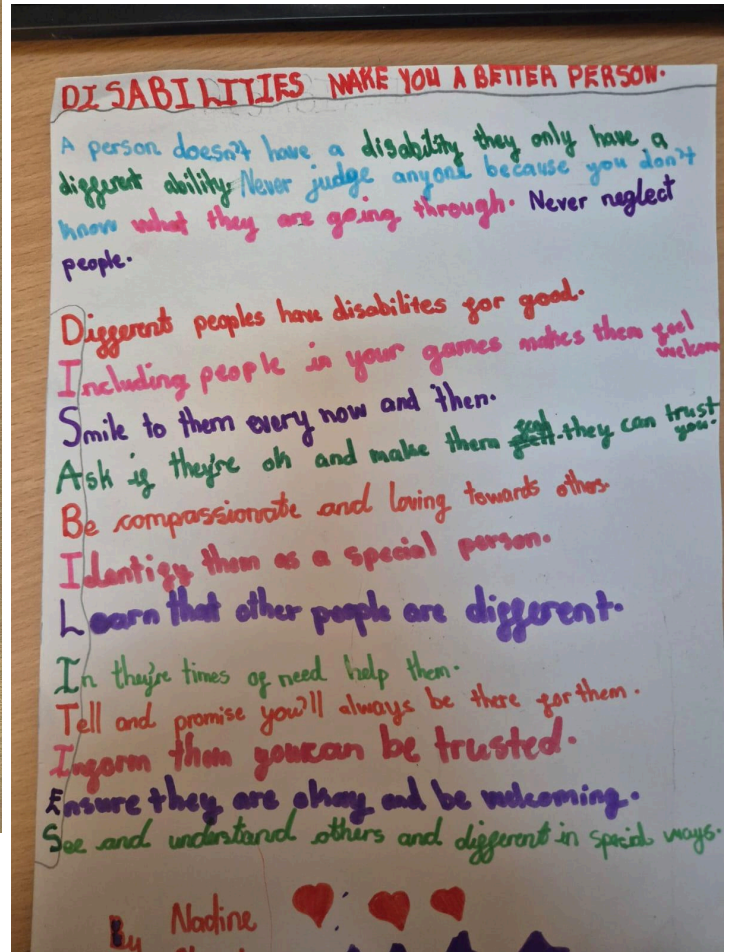 DISABILITIES MAKE YOU A BETTER PERSON.
A person doesn't have a disability they only have a
different ability. Never judge anyone because you don't
know what they are going through. Never neglect
people.
Different peoples have disabilites for good.
Including people in your games makes them feel
welcom
Smile to them every now and then.
Ask if they're ok and make them feel they can trust
you.
Be compassionate and loving towards others.
Identify them as a special person.
Learn that other people are different.
In they're times of need help them.
Tell and promise you'll always be there for them.
Inform them you can be trusted.
Ensure they are okay and be welcoming.
See and understand others and different in special ways.
By Nadine